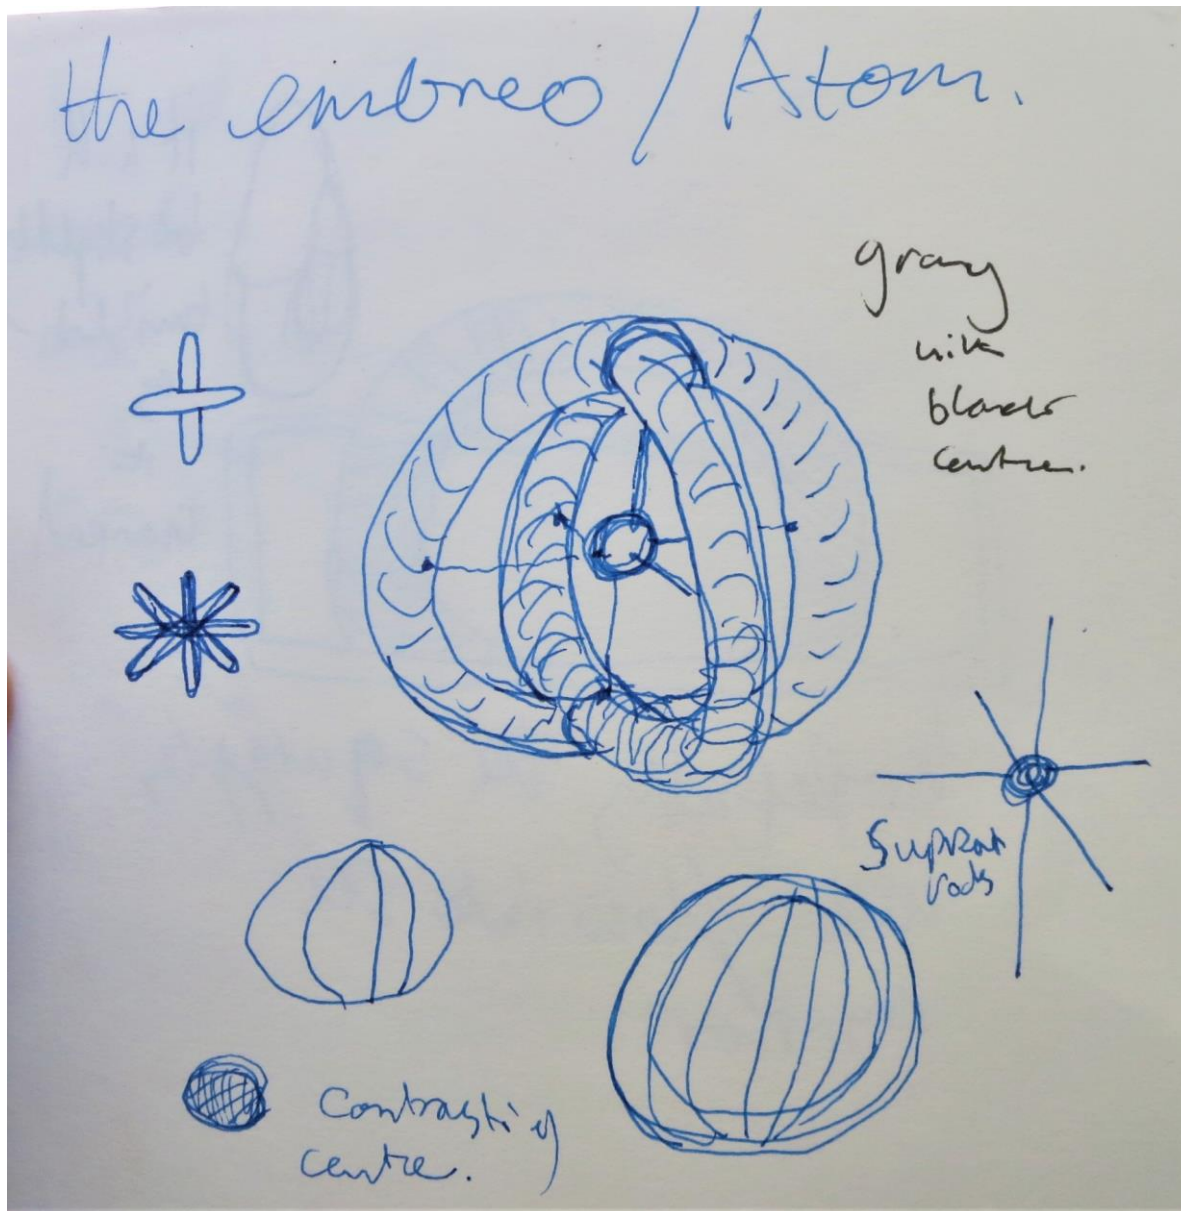 the embreo / Atom.
gray
with
black
centre.
Support
rods
Contrasting
centre.